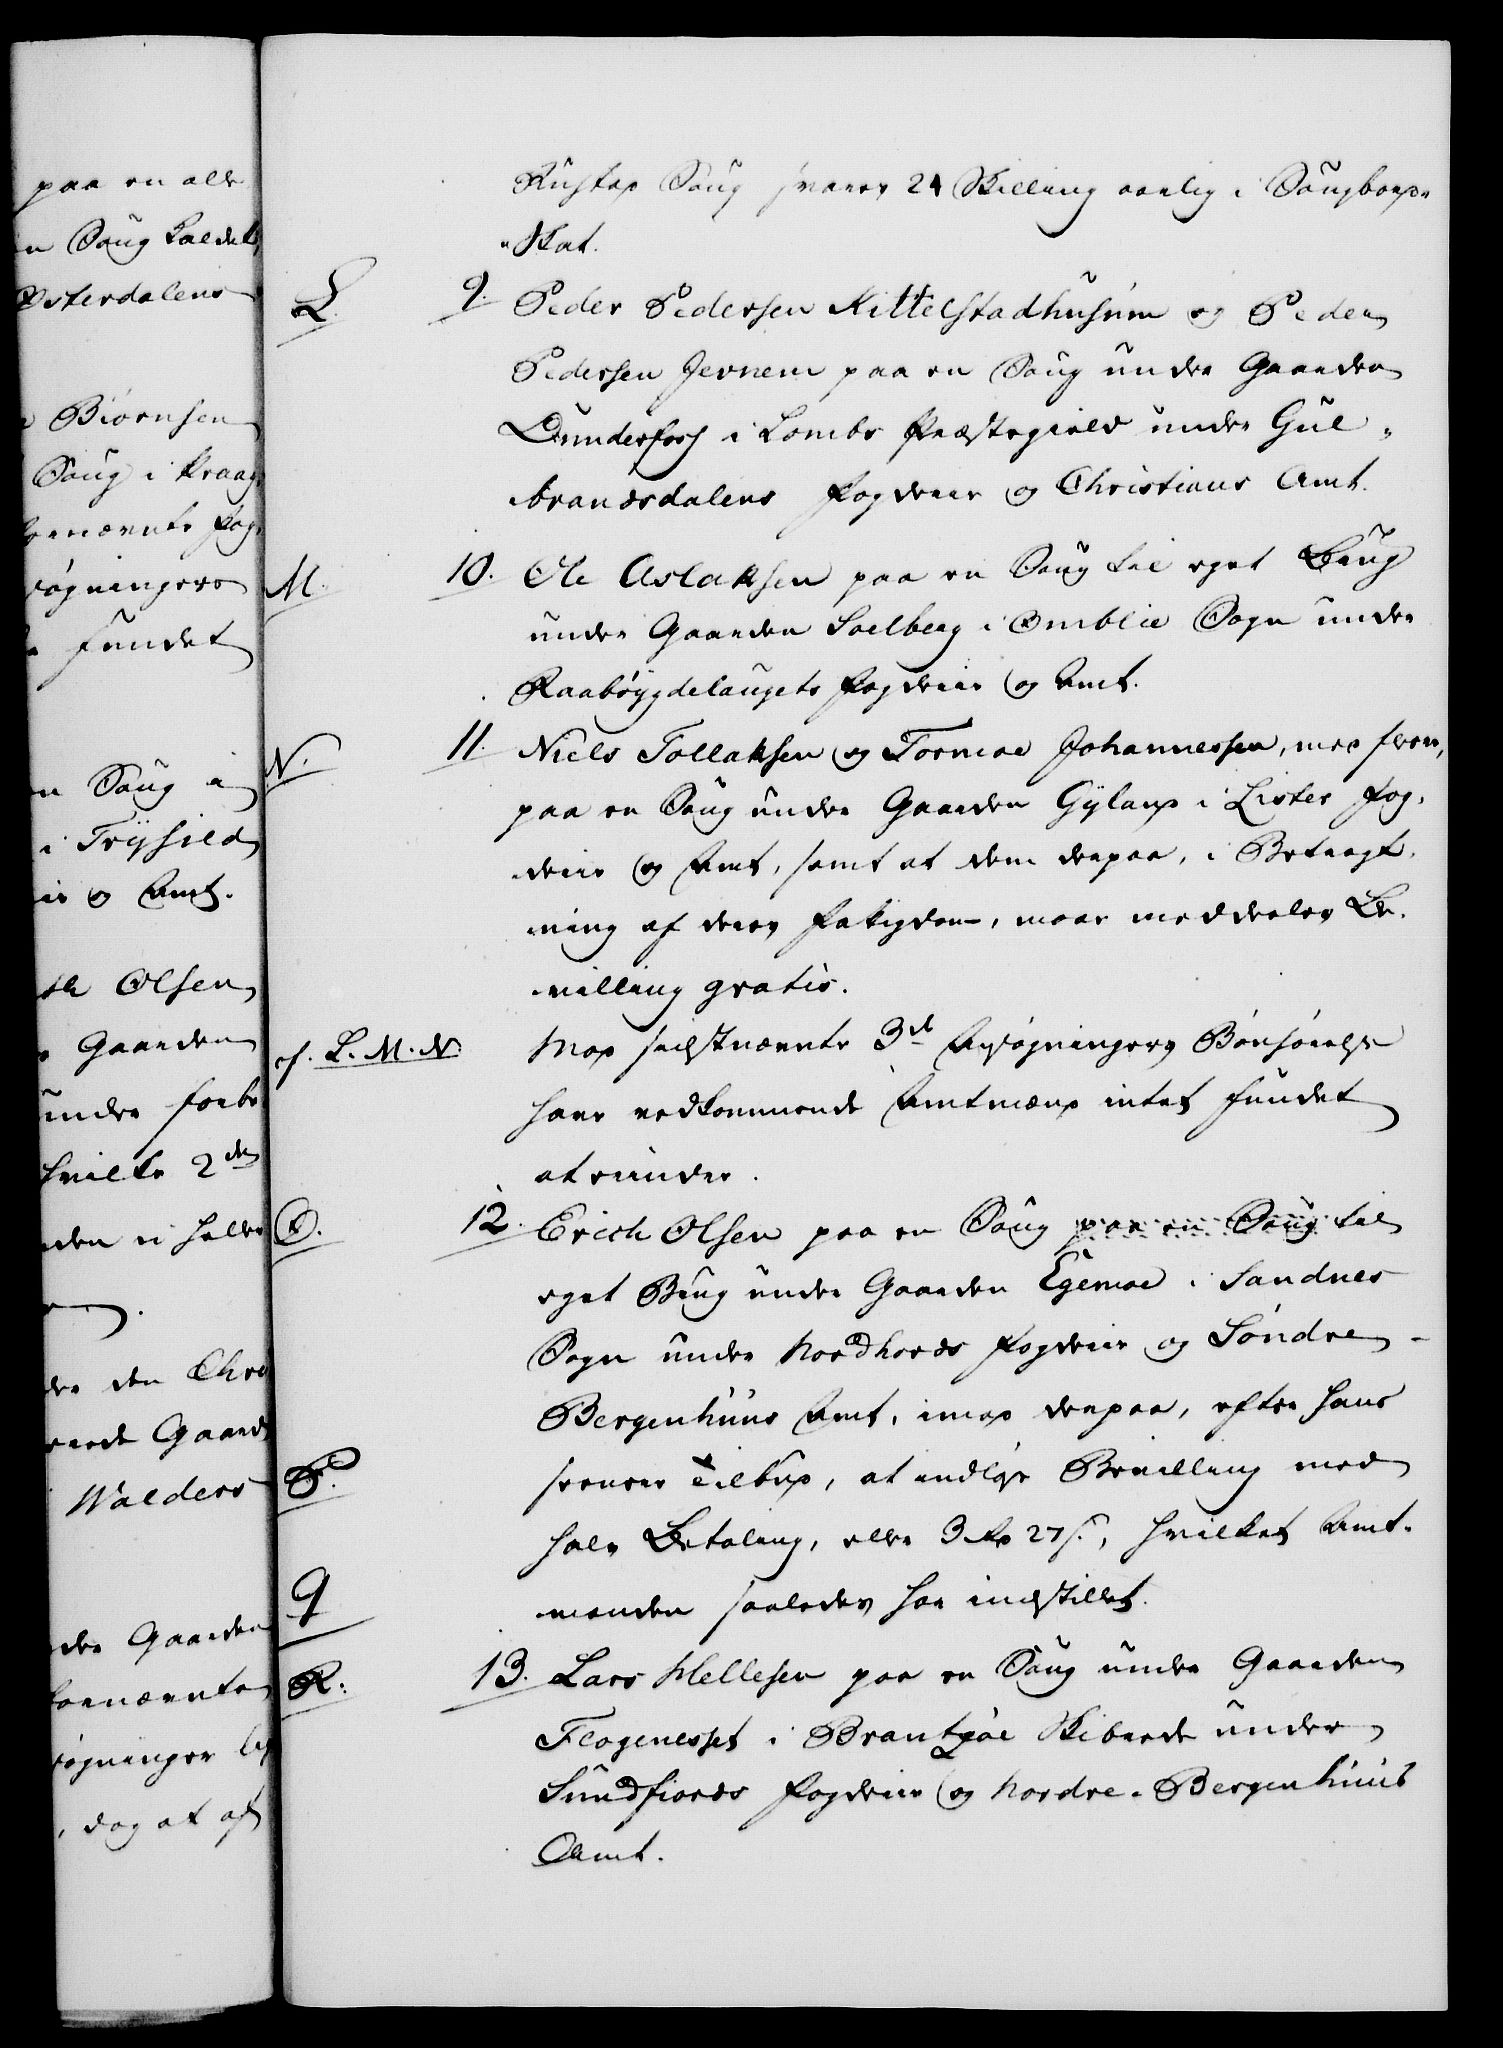 paa en alle
n Saug kaldet
Østerdalens
Biørnsen
Saug i Kraag
fornævnte Fog-
søgningers
fundet
n Saug i
i Trysild
ie og Amt.
Ole Olsen
Gaarden
under forbe
hvilke 2de
den ei heller
der den Chri
rende Gaard
Walders
der Gaarden
fornævnte
søgninger
, dog at af
Rustad Saug svarer 24 Skilling aarlig i Saugbords-
Skat.
L.
9. Peder Pedersen Kittelstadhusum og Peder
Pedersen Jevnem paa en Saug under Gaarden
Dunderfors i Lombs Præstegield under Gul-
brandsdalens Fogderie og Christians Amt.
M.
10. Ole Aslaksen paa en Saug til eget Brug
under Gaarden Soelberg i Omblie Sogn under
Raabøygdelaugets Fogderie og Amt.
N.
11. Niels Tollaksen og Tormoe Johannessen, med fleere,
paa en Saug under Gaarden Gyland i Lister Fog-
derie og Amt, samt at dem derpaa, i Betragt-
ning af deres Fattigdom, maae meddeles Be-
villing gratis.
cf. L. M. N.
Mod sidstnævnte 3de Ansøgningers Bønhørelse
have vedkommende Amtmænd intet fundet
at erindre.
O.
12. Erich Olsen paa en Saug paa en Saug til
eget Brug under Gaarden Egemoe i Sandnes
Sogn under Nordhords Fogderie og Søndre-
Bergenhuus Amt, imod derpaa, efter hans
P.
seeneere Tilbud, at indløse Bevilling med
halv Betaling, eller 3 Rd 27 s., hvilket Amt-
manden saaledes har indstillet.
Q
R.
13. Lars Mellesen paa en Saug under Gaarden
Flogenesset i Brantsøe Skibrede under
Sundfiords Fogderie og Nordre-Bergenhuus
Amt.